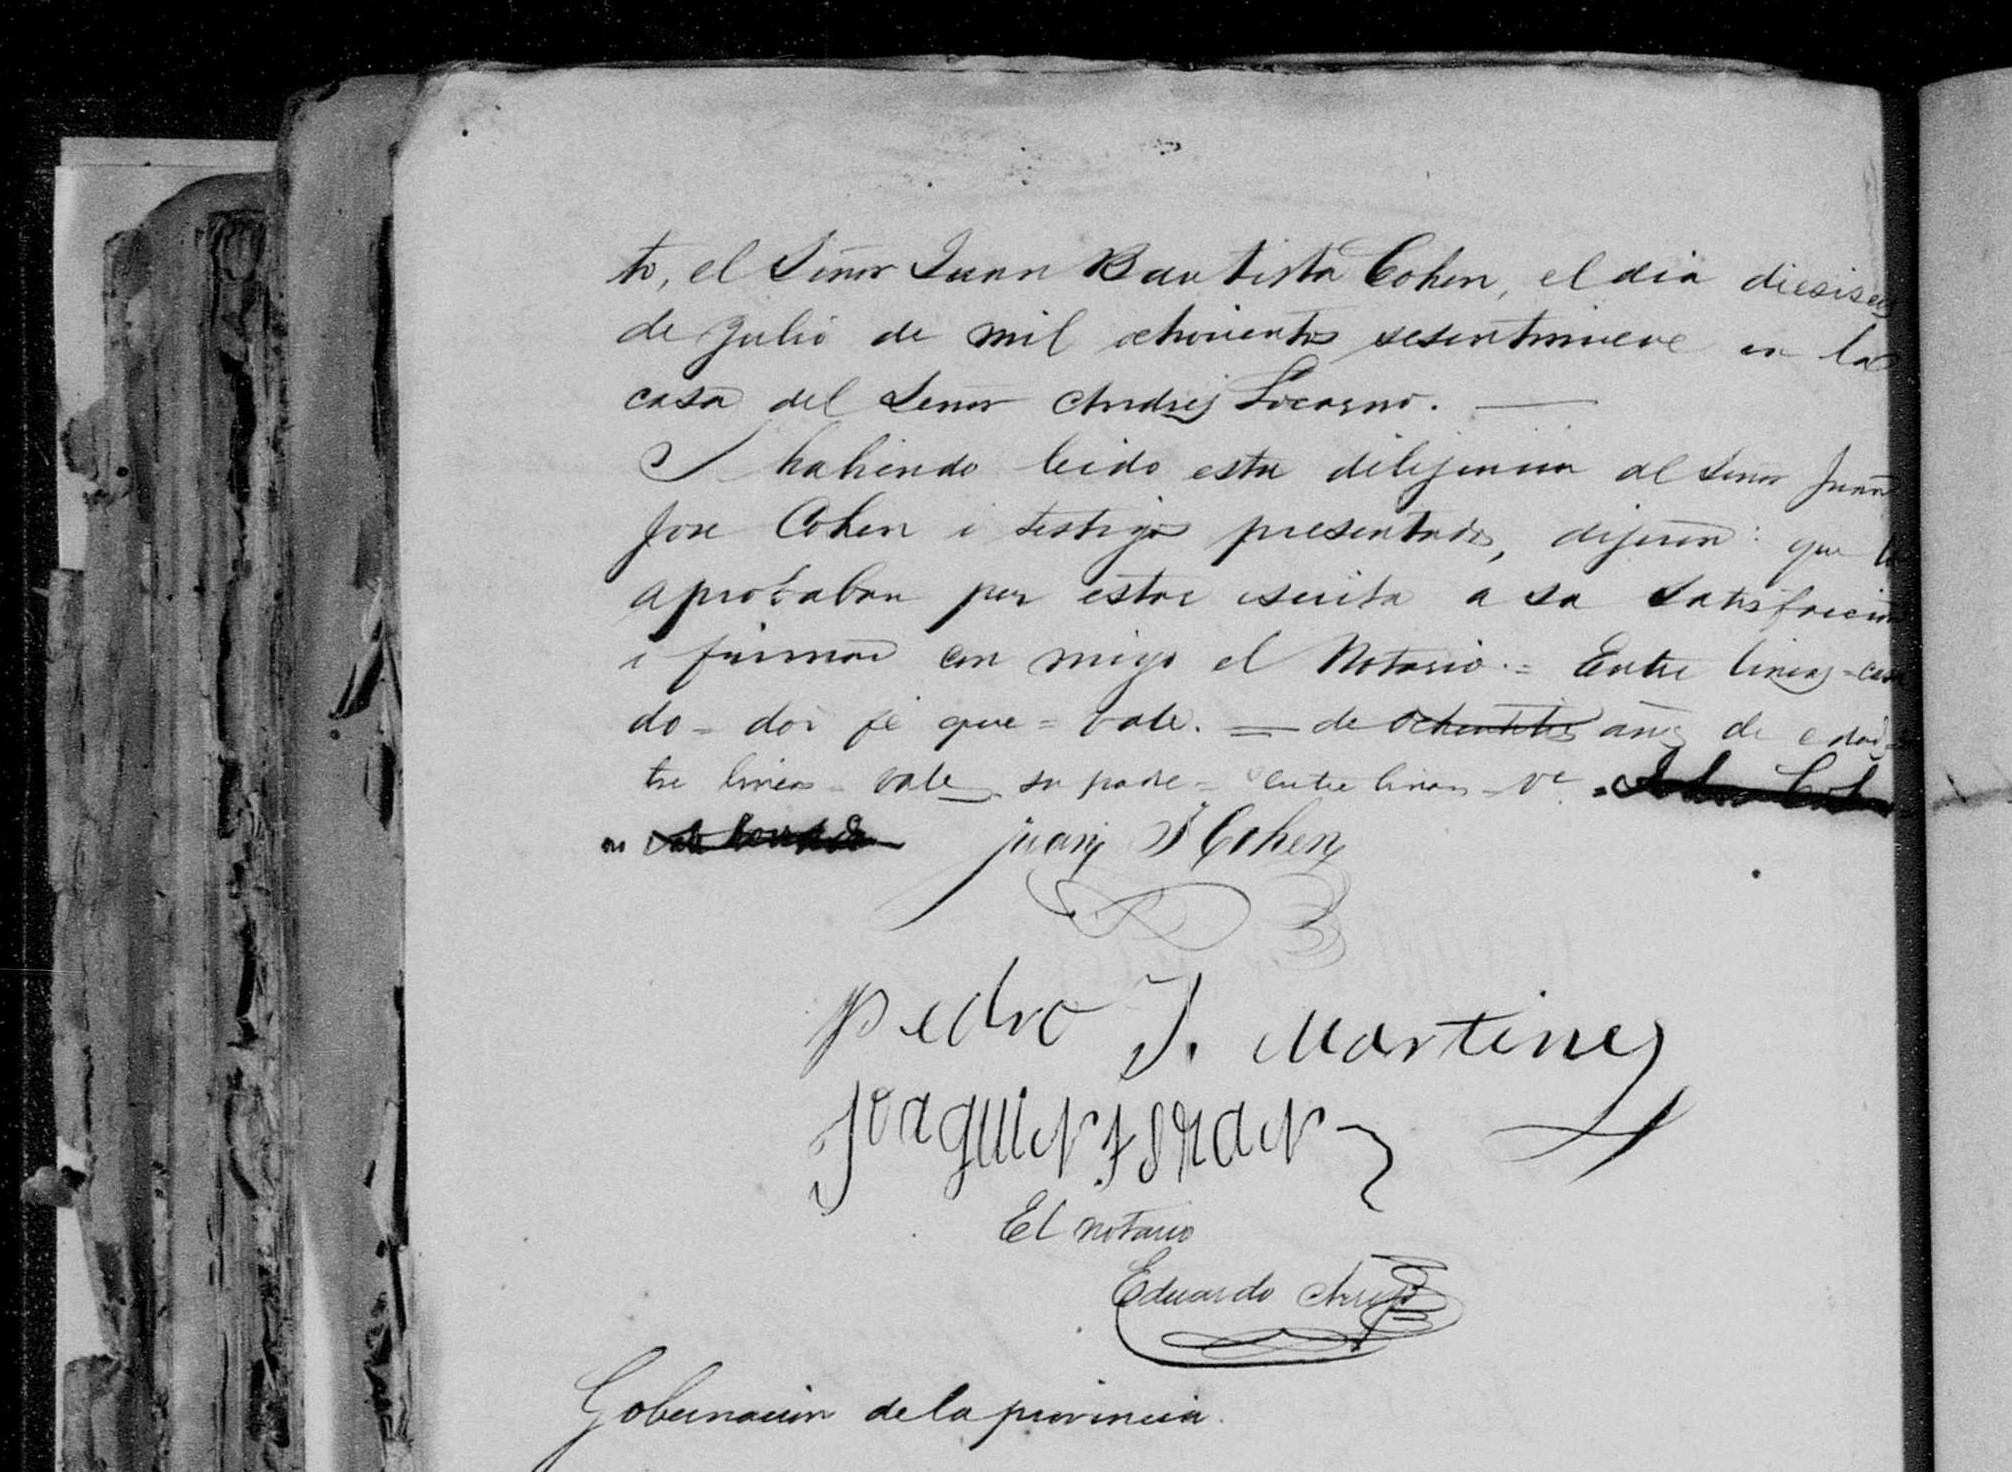 to, el Señor Juan Bautista Cohen, el dia diesiseis
de Julio de mil ochocientos sesentinueve en la
casa del Señor Andres Locarno.
I habiendo leido esta dilijencia al Señor Juan
Jose Cohen i testigos presentados, dijeron: que la
aprobaban por estar escrita a sa satisfaccion
i firman con migo el Notario. = Entre lineas - casa
do - doi fé que = vale. = de ochentitres años de edad =
tre lineas - vale - su padre = entre lineas - Ve. =
juan J Cohen
Pedro J. Martines
Joaquin
El notario
Eduardo
Gobernacion de la provincia.